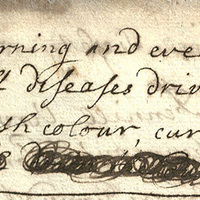 rning and eve
diseases driv
th colour, cur